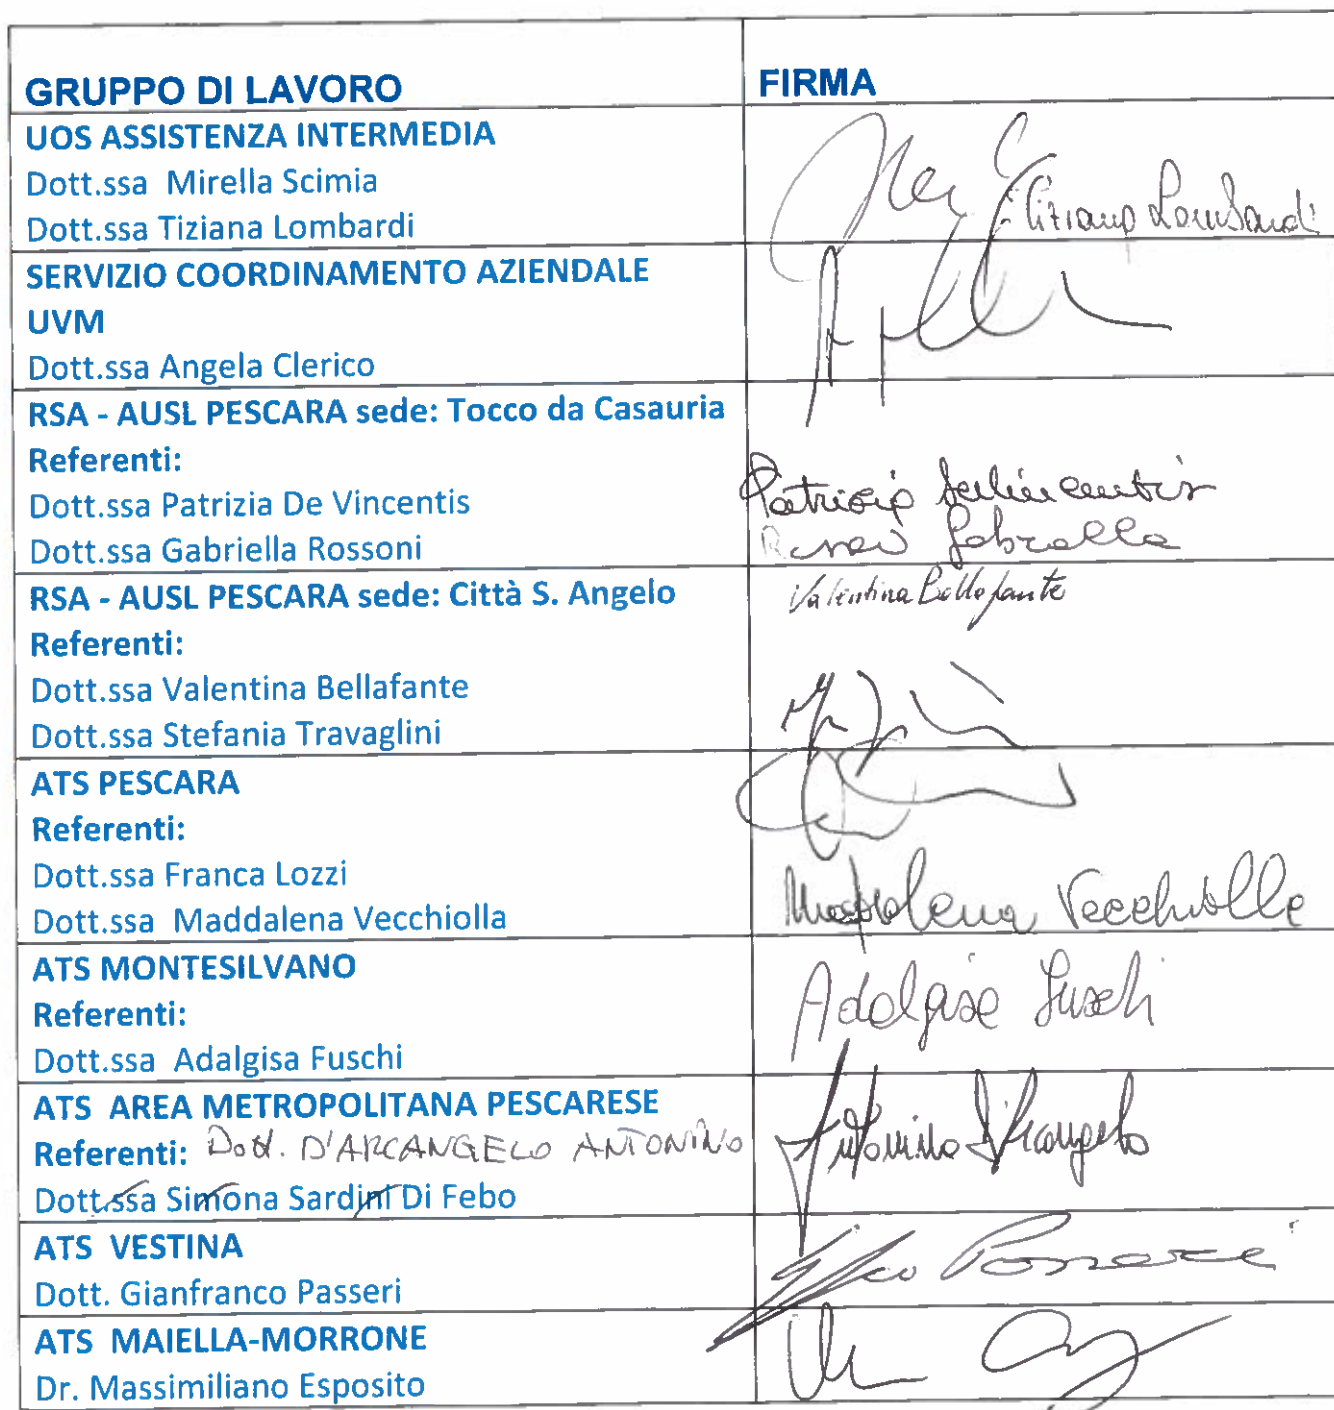 GRUPPO DI LAVORO
FIRMA
UOS ASSISTENZA INTERMEDIA
Dott.ssa Mirella Scimia
Dott.ssa Tiziana Lombardi
Tiziana Lombardi
SERVIZIO COORDINAMENTO AZIENDALE
UVM
Dott.ssa Angela Clerico
RSA - AUSL PESCARA sede: Tocco da Casauria
Referenti:
Dott.ssa Patrizia De Vincentis
Patrizia De Vincentis
Dott.ssa Gabriella Rossoni
Gabriella
RSA - AUSL PESCARA sede: Città S. Angelo
Valentina Bellafante
Referenti:
Dott.ssa Valentina Bellafante
Dott.ssa Stefania Travaglini
ATS PESCARA
Referenti:
Dott.ssa Franca Lozzi
Dott.ssa Maddalena Vecchiolla
Maddalena Vecchiolla
ATS MONTESILVANO
Referenti:
Adalgisa Fuschi
Dott.ssa Adalgisa Fuschi
ATS AREA METROPOLITANA PESCARESE
Referenti: Dott. D'ARCANGELO ANTONINO
Antonino D'Arcangelo
Dott.ssa Simona Sardini Di Febo
ATS VESTINA
Dott. Gianfranco Passeri
Passeri
ATS MAIELLA-MORRONE
Dr. Massimiliano Esposito